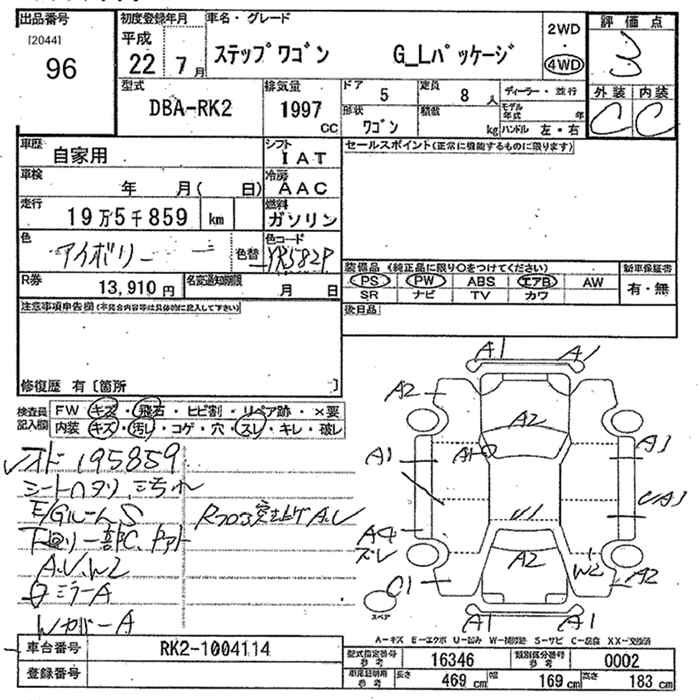 出品番号
[2044]
96
初度登録年月
平成
22年
7月
車名・グレード
ステップワゴン G_Lパッケージ
2WD
・
4WD
評価点
3
外装 内装
C C
型式
DBA-RK2
排気量
1997
CC
ドア
5
定員
8人
形状
ワゴン
積載
kg
ディーラー・並行
モデル年式 年
ハンドル 左・右
車歴
自家用
シフト
IAT
セールスポイント(正常に機能するものに限ります)
車検
年 月( 日)
冷房
AAC
走行
19万5千859 km
燃料
ガソリン
色
アイボリー
色替
色コード
YR582P
R券
13,910円
名変通知期限
月 日
装備品 (純正品に限り○をつけてください)
PS PW ABS エアB AW
SR ナビ TV カワ
新車保証書
有・無
後日品
注意事項申告欄(不具合内容等は具体的に記入して下さい)
修復歴 有〔箇所 〕
検査員記入欄
FW キズ・飛石・ヒビ割・リペア跡・×要
内装 キズ・汚レ・コゲ・穴・スレ・キレ・破レ
メオド195859
シートヘタリ、ヨゴれ
E/Gルーム S
Rフロア突上げ A.U
下回り一部C,
A.U.W2
ミラーA
WカバーA
A1 A1
A2
A2
A1
A1
U1
A4
スレ
A2
W2
A2
C1
A1 A1
スペア
A-キズ E-エクボ U-凹み W-補修跡 S-サビ C-腐食 XX-交換済
車台番号
RK2-1004114
登録番号
型式指定番号
参考
16346
類別区分番号
参考
0002
車庫証明用
参考
長さ
469 cm
幅
169 cm
高さ
183 cm